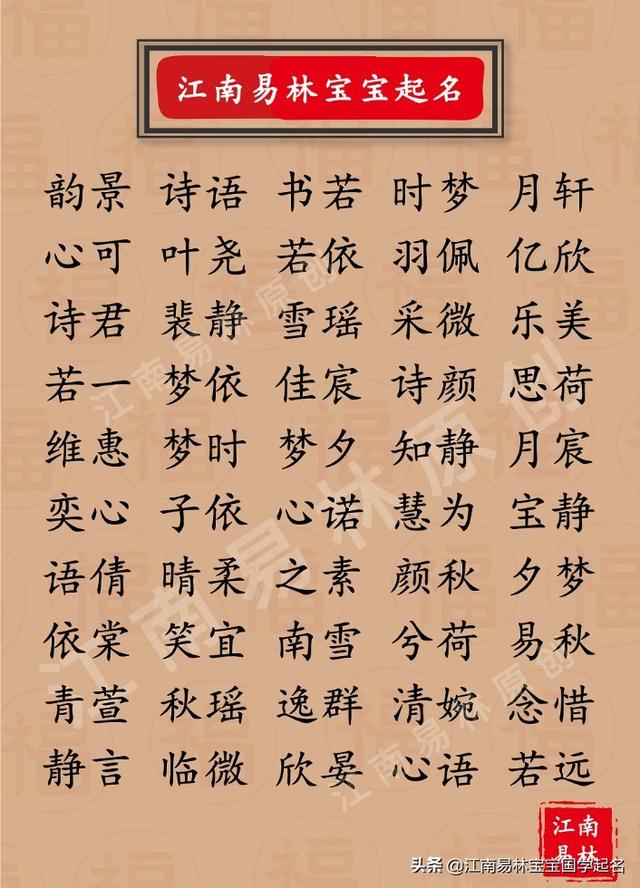 江南易林宝宝起名
韵景 诗语 书若 时梦 月轩
心可 叶尧 若依 羽佩 亿欣
诗君 裴静 雪瑶 采微 乐美
若一 梦依 佳宸 诗颜 思荷
维惠 梦时 梦夕 知静 月宸
奕心 子依 心诺 慧为 宝静
语倩 晴柔 之素 颜秋 夕梦
依棠 笑宜 南雪 兮荷 易秋
青萱 秋瑶 逸群 清婉 念惜
静言 临微 欣晏 心语 若远
江南易林原创
江南易林原创
江南易林原创
江南
易林
头条 @江南易林宝宝国学起名